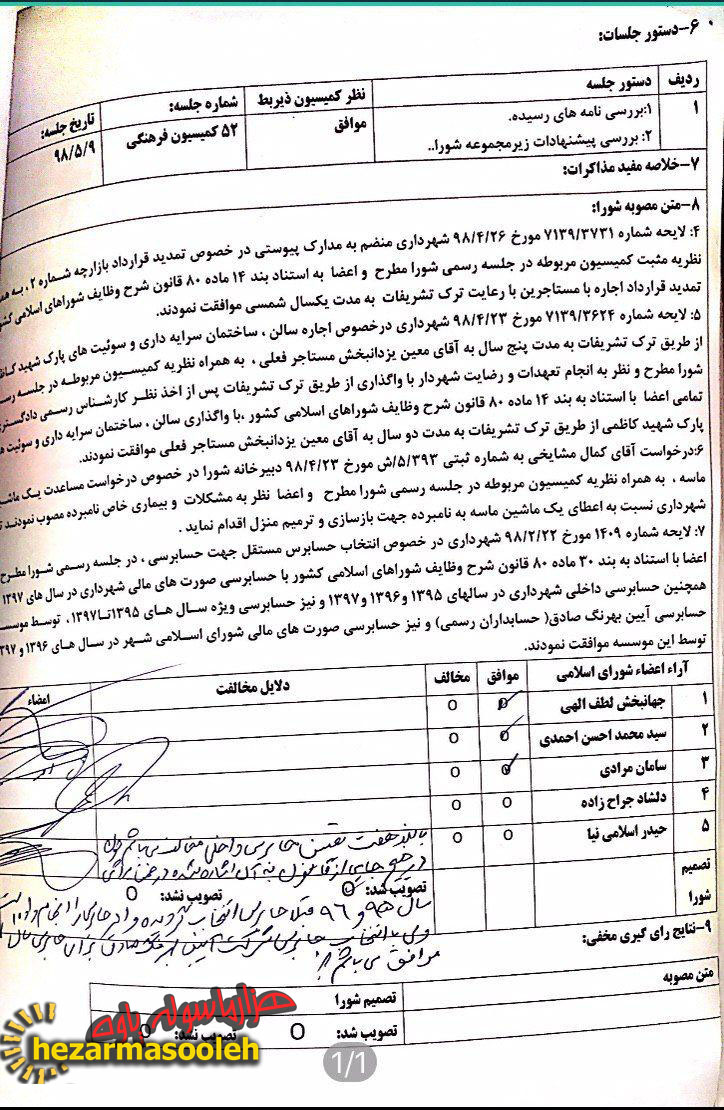 ۶-دستور جلسات:
ردیف دستور جلسه نظر کمیسیون ذیربط شماره جلسه: تاریخ جلسه:
۱ ۱:بررسی نامه های رسیده. موافق ۵۲ کمیسیون فرهنگی ۹۸/۵/۹
۲: بررسی پیشنهادات زیرمجموعه شورا..
۷-خلاصه مفید مذاکرات:
۸-متن مصوبه شورا:
۴: لایحه شماره ۷۱۳۹/۳۷۳۱ مورخ ۹۸/۴/۲۶ شهرداری منضم به مدارک پیوستی در خصوص تمدید قرارداد بازارچه شماره ۲ ، به
نظریه مثبت کمیسیون مربوطه در جلسه رسمی شورا مطرح و اعضا به استناد بند ۱۴ ماده ۸۰ قانون شرح وظایف شوراهای اسلامی
تمدید قرارداد اجاره با مستاجرین با رعایت ترک تشریفات به مدت یکسال شمسی موافقت نمودند.
۵: لایحه شماره ۷۱۳۹/۳۶۲۴ مورخ ۹۸/۴/۲۳ شهرداری درخصوص اجاره سالن ، ساختمان سرایه داری و سوئیت های پارک شهید
از طریق ترک تشریفات به مدت پنج سال به آقای معین یزدانبخش مستاجر فعلی ، به همراه نظریه کمیسیون مربوطه در جلسه
شورا مطرح و نظر به انجام تعهدات و رضایت شهردار با واگذاری از طریق ترک تشریفات پس از اخذ نظر کارشناس رسمی دادگستری
تمامی اعضا با استناد به بند ۱۴ ماده ۸۰ قانون شرح وظایف شوراهای اسلامی کشور ،با واگذاری سالن ، ساختمان سرایه داری و سوئیت
پارک شهید کاظمی از طریق ترک تشریفات به مدت دو سال به آقای معین یزدانبخش مستاجر فعلی موافقت نمودند.
۶:درخواست آقای کمال مشایخی به شماره ثبتی ۵/۳۹۳/ش مورخ ۹۸/۴/۲۳ دبیرخانه شورا در خصوص درخواست مساعدت یک
ماسه ، به همراه نظریه کمیسیون مربوطه در جلسه رسمی شورا مطرح و اعضا نظر به مشکلات و بیماری خاص نامبرده مصوب نمودند
شهرداری نسبت به اعطای یک ماشین ماسه به نامبرده جهت بازسازی و ترمیم منزل اقدام نماید .
۷: لایحه شماره ۱۴۰۹ مورخ ۹۸/۲/۲۲ شهرداری در خصوص انتخاب حسابرس مستقل جهت حسابرسی ، در جلسه رسمی شورا مطرح
اعضا با استناد به بند ۳۰ ماده ۸۰ قانون شرح وظایف شوراهای اسلامی کشور با حسابرسی صورت های مالی شهرداری در سال های ۱۳۹۷
همچنین حسابرسی داخلی شهرداری در سالهای ۱۳۹۵ و۱۳۹۶ و۱۳۹۷ و نیز حسابرسی ویژه سال های ۱۳۹۵تا۱۳۹۷ ، توسط
حسابرسی آیین بهرنگ صادق( حسابداران رسمی) و نیز حسابرسی صورت های مالی شورای اسلامی شهر در سال های ۱۳۹۶ و
توسط این موسسه موافقت نمودند.
آراء اعضاء شورای اسلامی موافق مخالف دلایل مخالفت امضاء
۱ جهانبخش لطف الهی O O
۲ سید محمد احسن احمدی O O
۳ سامان مرادی O O
۴ دلشاد جراح زاده O O
۵ حیدر اسلامی نیا O O
تصمیم شورا تصویب شد: O تصویب نشد: O
۹-نتایج رای گیری مخفی:
متن مصوبه تصمیم شورا
تصویب شد: O تصویب نشد: O
هزارماسوله پاوه
hezarmasooleh
1/1